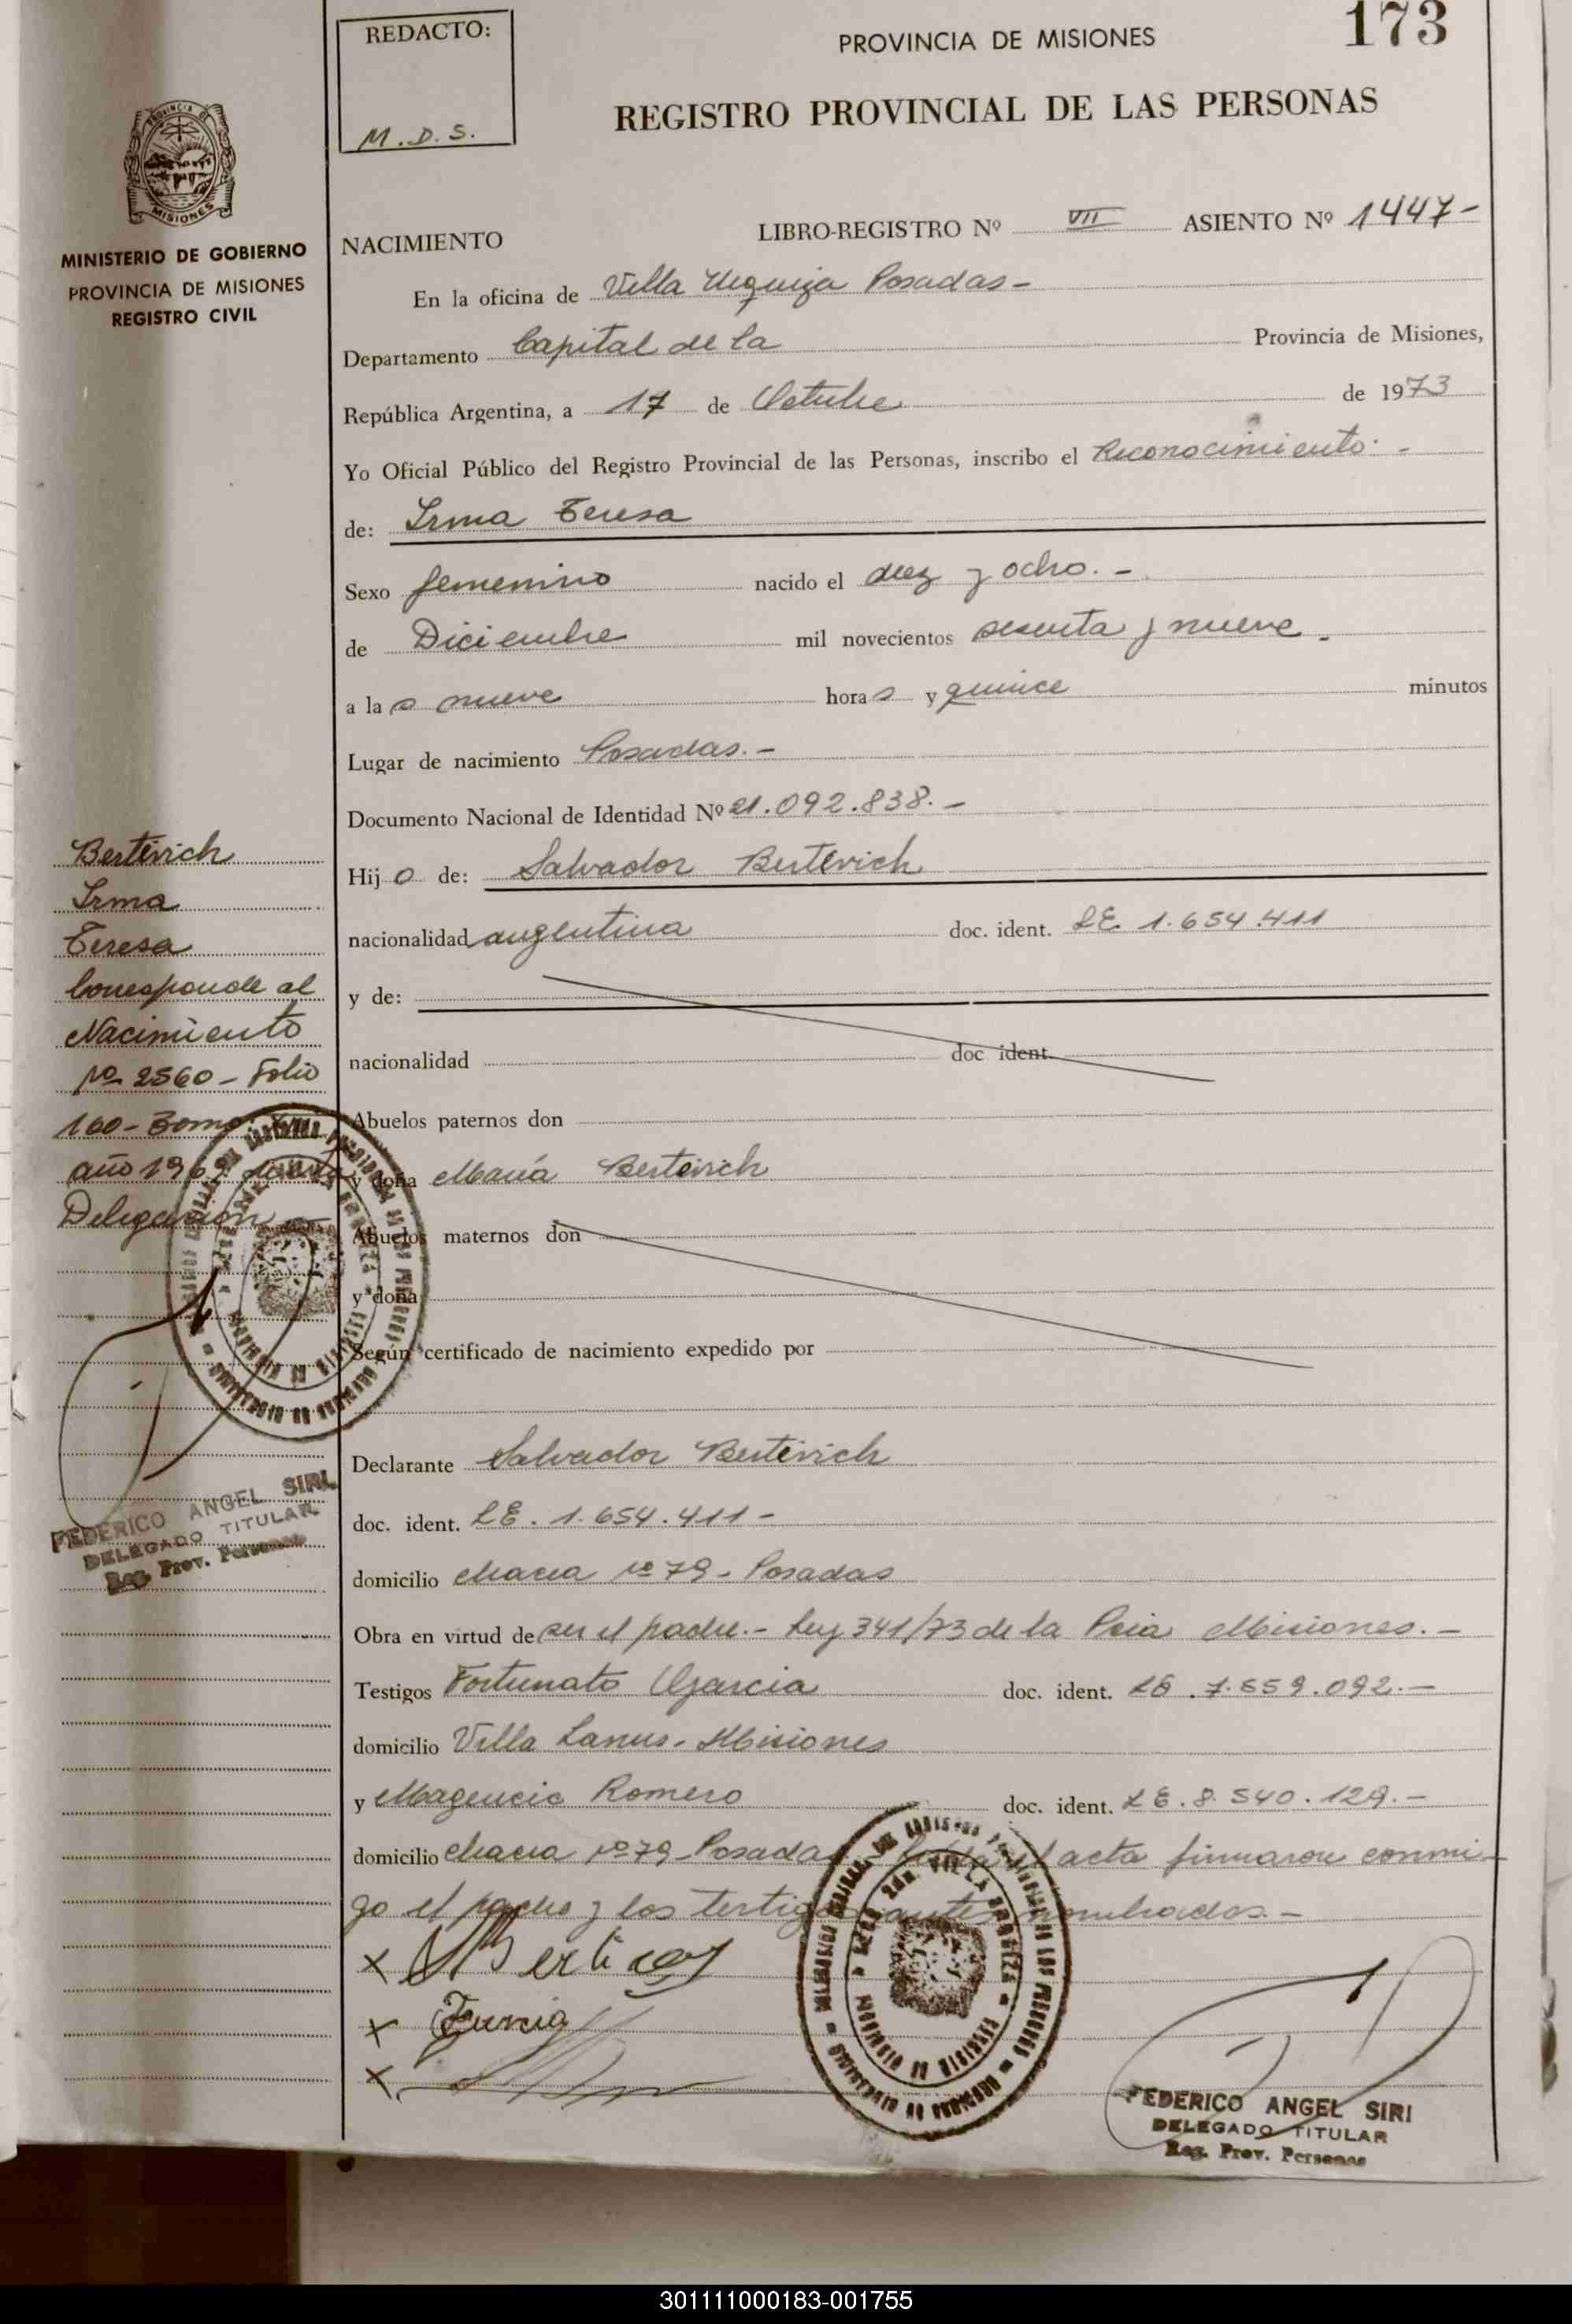 173
REDACTO:
M.D.S.
PROVINCIA DE MISIONES
REGISTRO PROVINCIAL DE LAS PERSONAS
MISIONES
MINISTERIO DE GOBIERNO
PROVINCIA DE MISIONES
REGISTRO CIVIL
NACIMIENTO
LIBRO-REGISTRO Nº VII ASIENTO Nº 1447-
En la oficina de Villa Urquiza Posadas-
Departamento Capital de la Provincia de Misiones,
República Argentina, a 17 de Octubre de 1973
Yo Oficial Público del Registro Provincial de las Personas, inscribo el Reconocimiento.-
de: Irma Teresa
Sexo femenino nacido el diez y ocho.-
de Diciembre mil novecientos sesenta y nueve.
a las nueve horas y quince minutos
Lugar de nacimiento Posadas.-
Documento Nacional de Identidad Nº 21.092.838.-
Hijo de: Salvador Bertevich
nacionalidad argentina doc. ident. LE 1.654.411
y de:
nacionalidad doc ident.
Abuelos paternos don
y doña María Bertevich
Abuelos maternos don
y doña
Según certificado de nacimiento expedido por
Declarante Salvador Bertevich
doc. ident. LE. 1.654.411-
domicilio chacra nº 79- Posadas
Obra en virtud de ser el padre.- Ley 341/73 de la Pcia Misiones.-
Testigos Fortunato Ugarcia doc. ident. LE .7.559.092.-
domicilio Villa Lanus- Misiones
y Magencio Romero doc. ident. LE.8.540.129.-
domicilio chacra nº 79- Posadas acta firmaron conmi-
go el padre y los testigos antes nombrados.-
Bertevich
Irma
Teresa
Corresponde al
Nacimiento
nº 2560- Folio
160- Tomo
año 1969
Delegación
FEDERICO ANGEL SIRI
DELEGADO TITULAR
Reg. Prov. Personas
FEDERICO ANGEL SIRI
DELEGADO TITULAR
Reg. Prov. Personas
301111000183-001755